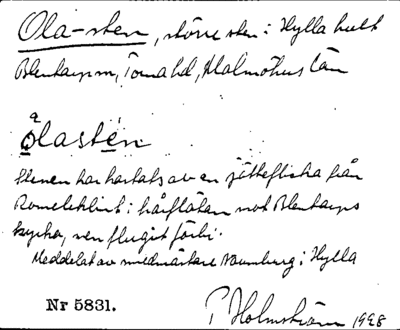 Ola-sten, större sten i Hylla hult
Blentarps sn, Torna hd, Malmöhus län
a
ǫlastén
Stenen har kastats av en jätteflicka från
Romeleklint i hårflätan mot Blentarps
kyrka, men flugit förbi.
Meddelat av småbrukare Naumburg i Hylla
Nr 5831.
P Holmström 1928